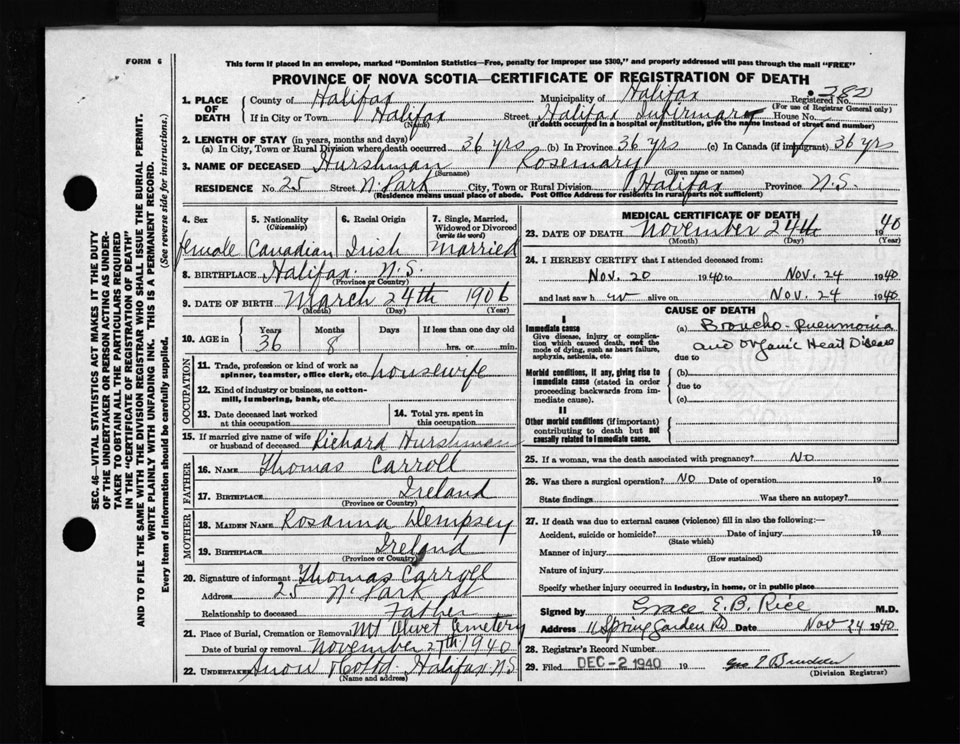 FORM 6
This form if placed in an envelope, marked "Dominion Statistics—Free, penalty for improper use $300," and properly addressed will pass through the mail "FREE"
PROVINCE OF NOVA SCOTIA—CERTIFICATE OF REGISTRATION OF DEATH
SEC. 46—VITAL STATISTICS ACT MAKES IT THE DUTY
OF THE UNDERTAKER OR PERSON ACTING AS UNDER-
TAKER TO OBTAIN ALL THE PARTICULARS REQUIRED
IN THE "CERTIFICATE OF REGISTRATION OF DEATH"
AND TO FILE THE SAME WITH THE DIVISION REGISTRAR WHO SHALL ISSUE THE BURIAL PERMIT.
WRITE PLAINLY WITH UNFADING INK. THIS IS A PERMANENT RECORD.
Every item of information should be carefully supplied. (See reverse side for instructions.)
1. PLACE OF DEATH
County of Halifax Municipality of Halifax Registered No. 382
(For use of Registrar General only)
If in City or Town Halifax Street Halifax Infirmary House No.
(Name) (If death occurred in a hospital or institution, give the name instead of street and number)
2. LENGTH OF STAY (in years, months and days)
(a) In City, Town or Rural Division where death occurred 36 yrs (b) In Province 36 yrs (c) In Canada (if immigrant) 36 yrs
3. NAME OF DECEASED Hurshman Rosemary
(Surname) (Given name or names)
RESIDENCE No. 25 Street N. Park City, Town or Rural Division Halifax Province N.S.
(Residence means usual place of abode. Post Office Address for residents in rural parts not sufficient)
4. Sex 5. Nationality (Citizenship) 6. Racial Origin 7. Single, Married, Widowed or Divorced (write the word)
female Canadian Irish Married
8. BIRTHPLACE Halifax N.S.
(Province or Country)
9. DATE OF BIRTH March 24th 1906
(Month) (Day) (Year)
10. AGE in Years Months Days If less than one day old
36 8 hrs. or min.
OCCUPATION
11. Trade, profession or kind of work as spinner, teamster, office clerk, etc. housewife
12. Kind of industry or business, as cotton-mill, lumbering, bank, etc.
13. Date deceased last worked at this occupation
14. Total yrs. spent in this occupation
15. If married give name of wife or husband of deceased Richard Hurshman
FATHER
16. NAME Thomas Carroll
17. BIRTHPLACE Ireland
(Province or Country)
MOTHER
18. MAIDEN NAME Rosanna Dempsey
19. BIRTHPLACE Ireland
(Province or Country)
20. Signature of informant Thomas Carroll
Address 25 N. Park St
Relationship to deceased Father
21. Place of Burial, Cremation or Removal Mt Olivet Cemetery
Date of burial or removal November 27th 1940
22. UNDERTAKER Snow & Co Ltd. Halifax NS
(Name and address)
MEDICAL CERTIFICATE OF DEATH
23. DATE OF DEATH November 24th 1940
(Month) (Day) (Year)
24. I HEREBY CERTIFY that I attended deceased from:
Nov. 20 1940 to Nov. 24 1940
and last saw her alive on Nov. 24 1940
CAUSE OF DEATH
I
Immediate cause
Give disease, injury or complication which caused death, not the mode of dying, such as heart failure, asphyxia, asthenia, etc.
(a) Broncho-Pneumonia
and Organic Heart Disease
due to
Morbid conditions, if any, giving rise to immediate cause (stated in order proceeding backwards from immediate cause).
(b)
due to
(c)
II
Other morbid conditions (if important) contributing to death but not causally related to immediate cause.
25. If a woman, was the death associated with pregnancy? No
26. Was there a surgical operation? No Date of operation 19
State findings Was there an autopsy?
27. If death was due to external causes (violence) fill in also the following:—
Accident, suicide or homicide? Date of injury 19
(State which)
Manner of injury
(How sustained)
Nature of injury
Specify whether injury occurred in industry, in home, or in public place
Signed by Grace E. B. Rice M.D.
Address 11 Spring Garden Rd Date Nov 24 1940
28. Registrar's Record Number
29. Filed DEC-2 1940 19
(Division Registrar)